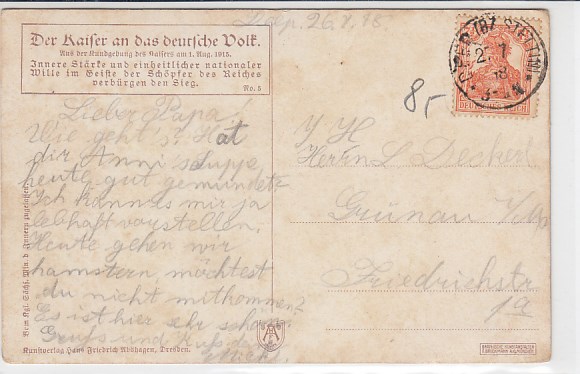 Der Kaiser an das deutsche Volk.
Aus der Kundgebung des Kaisers am 1. Aug. 1915.
Innere Stärke und einheitlicher nationaler
Wille im Geiste der Schöpfer des Reiches
verbürgen den Sieg.
No. 5
26.7.18
Lieber Papa!
Wie geht's? Hat
dir Anni's Suppe
heute gut gemundet?
Ich kann es mir ja
lebhaft vorstellen.
Heute gehen wir
hamstern, möchtest
du nicht mitkommen?
Es ist hier sehr schön.
Gruß und Kuß
8,-
DEUTSCHES REICH
Herrn L. Deckert
Grünau
Friedrichstr.
1a
Kunstverlag Hans Friedrich Abshagen, Dresden.